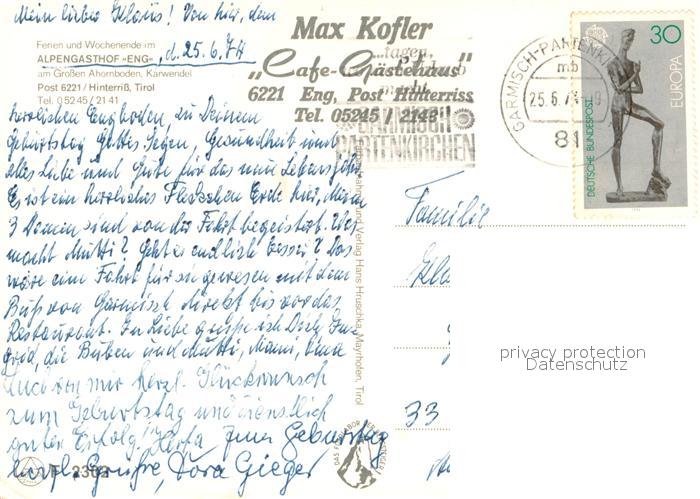 Mein lieber Klaus! Von hier, dem
Ferien und Wochenende im
ALPENGASTHOF »ENG«, d. 25.6.74
am Großen Ahornboden, Karwendel
Post 6221 / Hinterriß, Tirol
Tel. 0 52 45 / 21 41
Max Kofler
...tagen,
„Cafe-Gästehaus"
6221 Eng, Post Hinterriss
Tel. 05245 / 2143
GARMISCH
PARTENKIRCHEN
GARMISCH-PARTENKI
mb
25.6.7
81
30
EUROPA
DEUTSCHE BUNDESPOST
herrlichen Engboden, zu Deinem
Geburtstag Gottes Segen, Gesundheit und
alles Liebe und Gute für das neue Lebensjahr
Es ist ein herrliches Fleckchen Erde hier, Meine
3 Damen sind von der Fahrt begeistert. Was
macht Mutti? Geht es endlich besser? Das
wäre eine Fahrt für sie gewesen mit dem
Bus von Garmisch direkt bis vor das
Restaurant. In Liebe grüße ich Dich, In-
grid, die Buben und Mutti, Mami, Oma
Auch von mir herzl. Glückwunsch
zum Geburtstag und dienstlich
guten Erfolg! Herta
Zum Geburtstag
herzl. Grüße, Dora Gieger
F 2302
Verlag Hans Hruschka, Mayrhofen, Tirol
Familie
Kla
33
privacy protection
Datenschutz